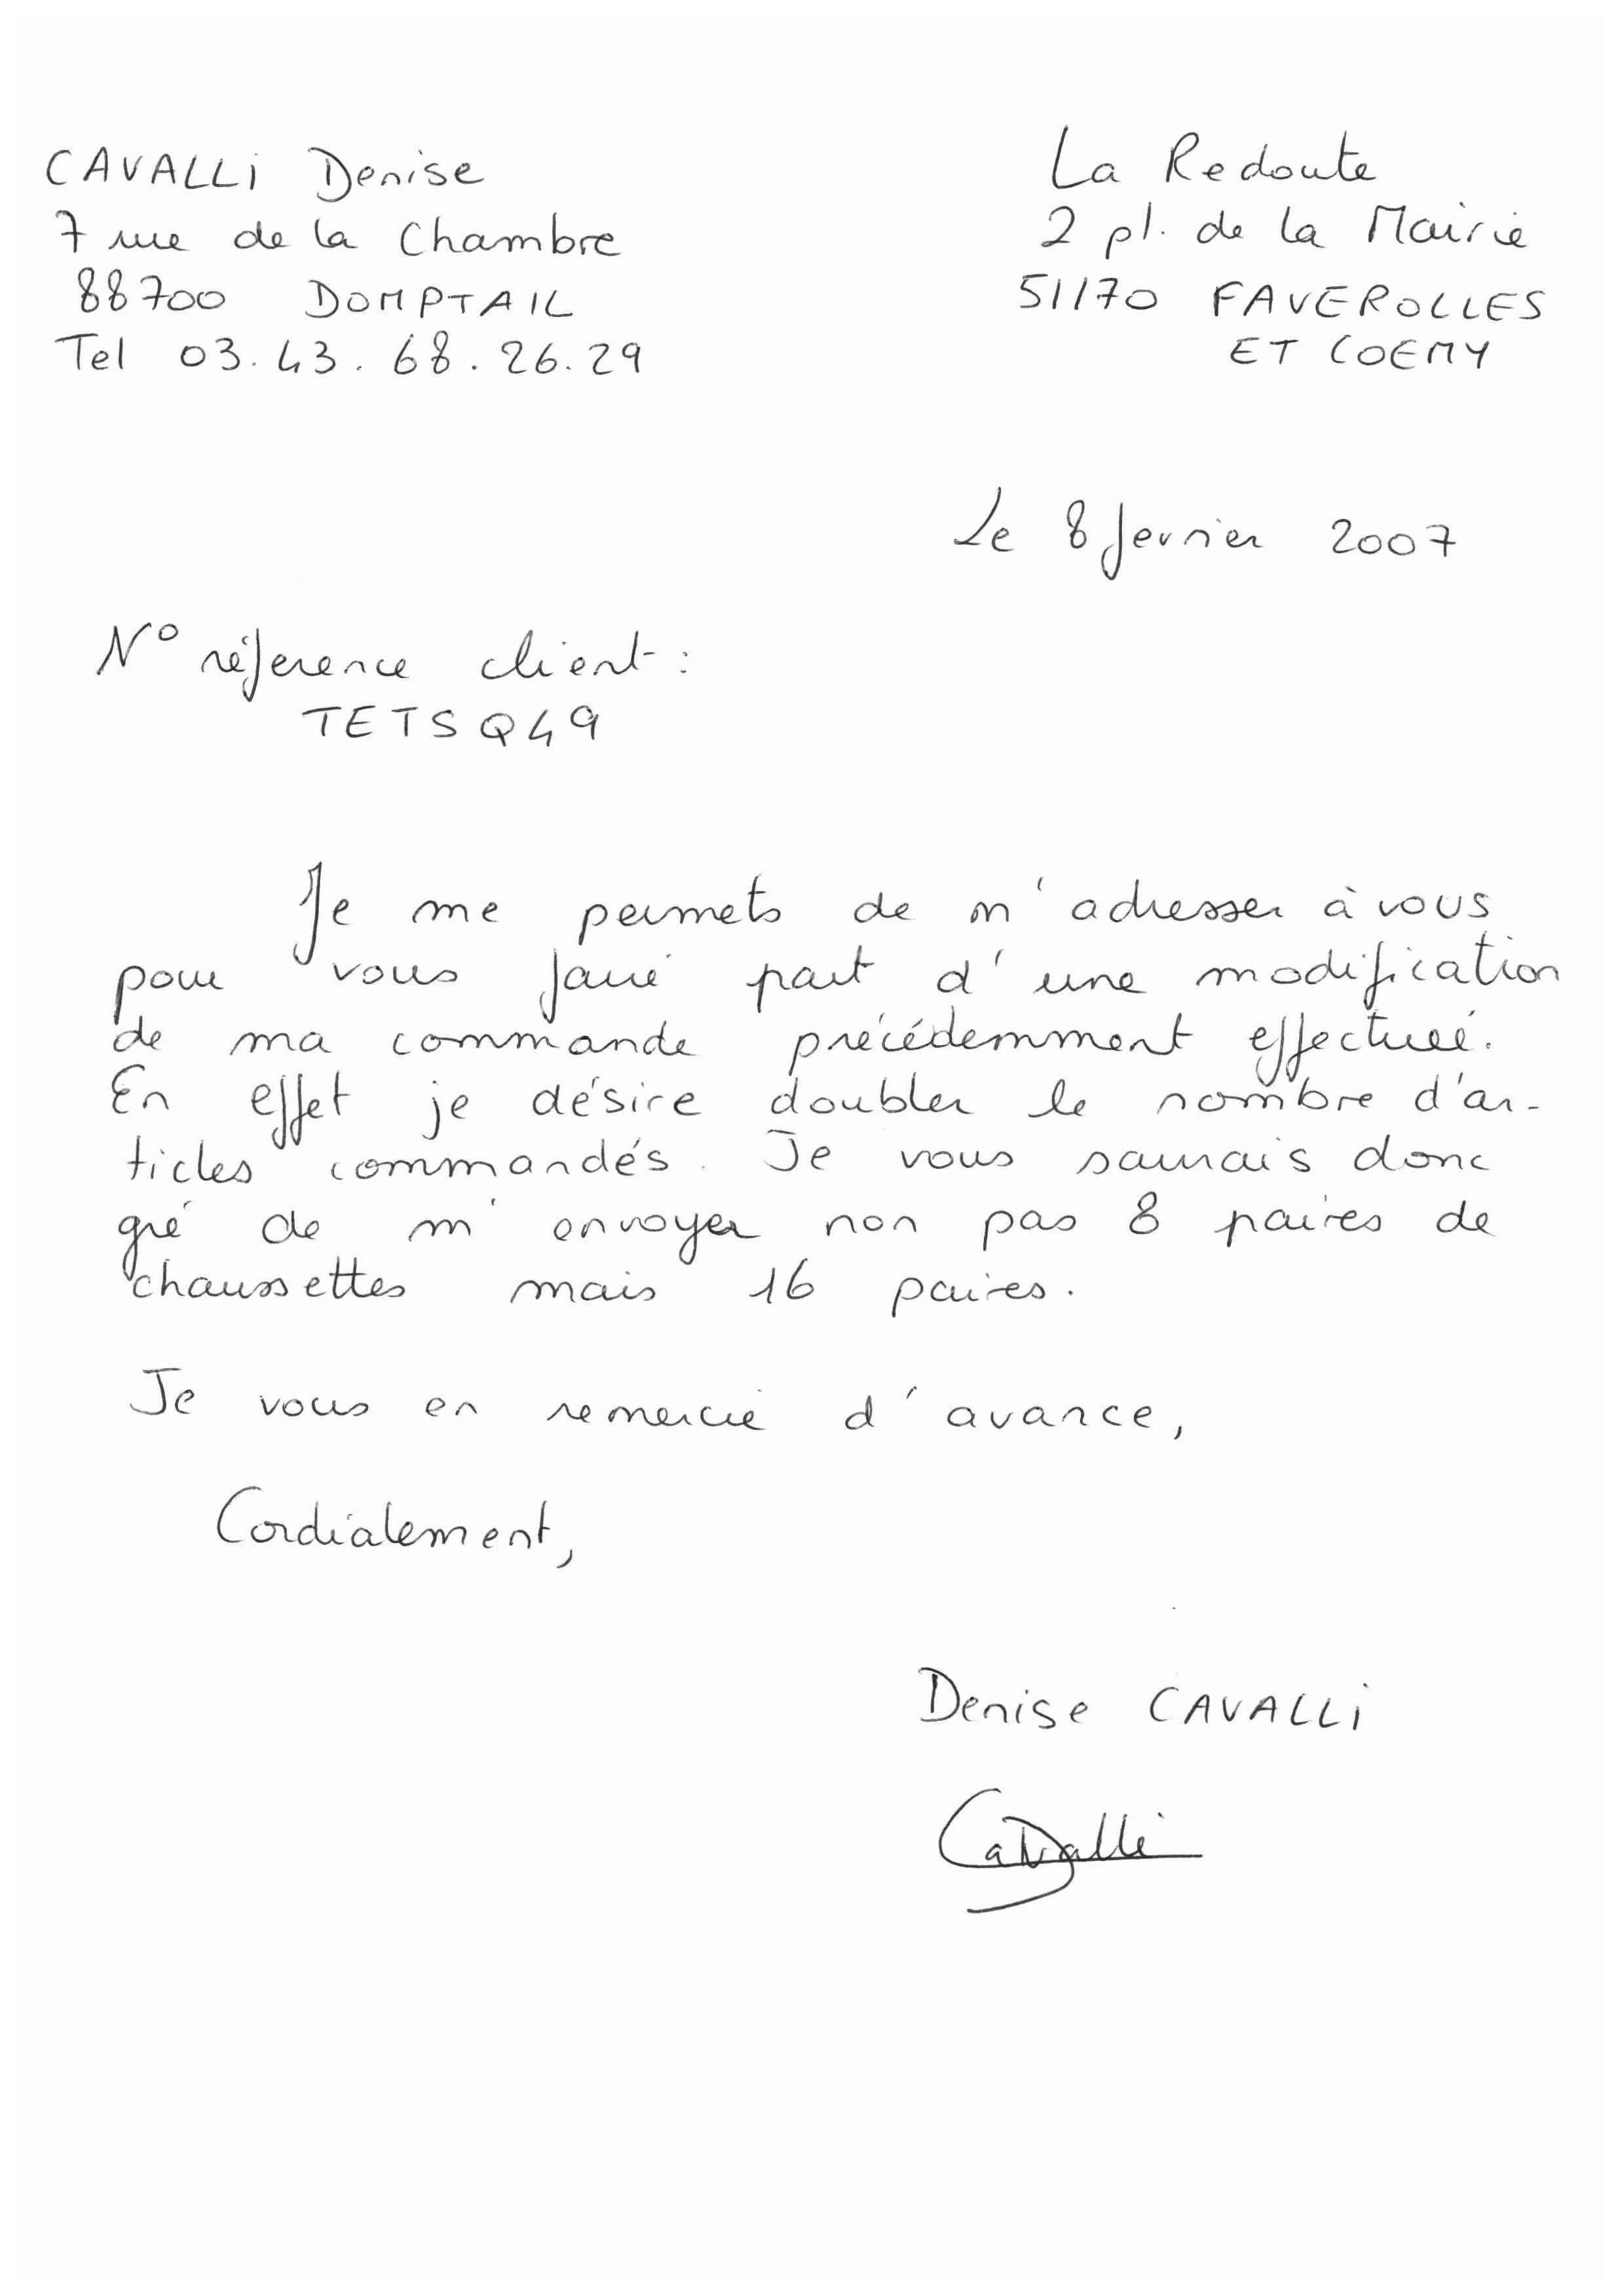 CAVALLi Denise
7 rue de la Chambre
88700 DOMPTAIL
Tel 03.43.68.26.29
La Redoute
2 pl. de la Mairie
51170 FAVEROLLES
ET COEMY
Le 8 fevrier 2007
N° réference client :
TETSQ49
Je me permets de m'adresser à vous
pour vous faire part d'une modification
de ma commande précédemment effectuée.
En effet je désire doubler le nombre d'ar-
ticles commandés. Je vous saurais donc
gré de m'envoyer non pas 8 paires de
chaussettes mais 16 paires.
Je vous en remercie d'avance,
Cordialement,
Denise CAVALLi
Cavalli